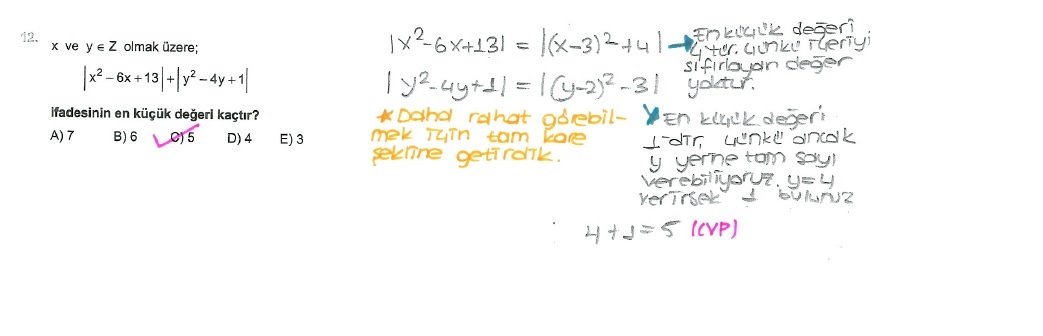 12.
x ve y ∈ Z olmak üzere;
|x² – 6x + 13| + |y² – 4y + 1|
ifadesinin en küçük değeri kaçtır?
A) 7 B) 6 C) 5 D) 4 E) 3
|x²-6x+13| = |(x-3)²+4| → En küçük değeri
4'tür. çünkü içeriyi
sıfırlayan değer
yoktur.
|y²-4y+1| = |(y-2)²-3|
* Daha rahat görebil-
mek için tam kare
şekline getirdik.
En küçük değeri
1'dir, çünkü ancak
y yerine tam sayı
verebiliyoruz. y=4
verirsek 1 buluruz
4+1=5 (CVP)